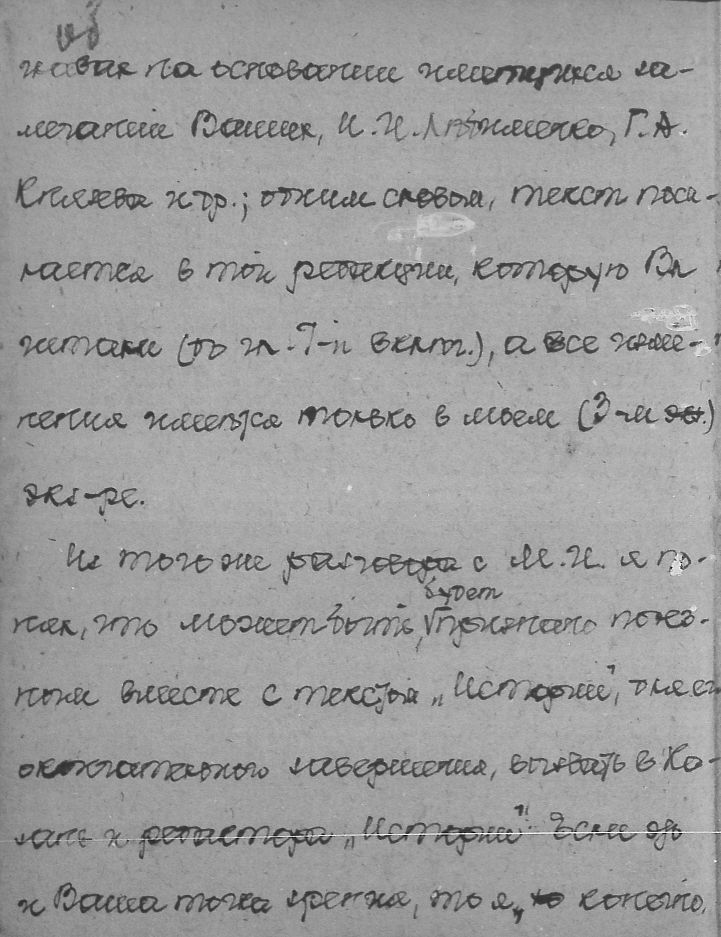 об
живал на основании имеющихся за-
мечаний Ваших, И.И. Любименко, Г.А.
Князева и др.; одним словом, текст посы-
лается в той редакции, которую Вы
читали (до гл. 7-й включ.), а все изме-
нения имеются только в моем (3-м эк.)
экз-ре.
Из того же разговора с М.И. я по-
нял, что может быть, будет признано полез-
ным вместе с текстом „Истории", для ее
окончательного завершения, вызвать в Ка-
зань и редактора „Истории". Если это
и Ваша точка зрения, то я, то конечно,